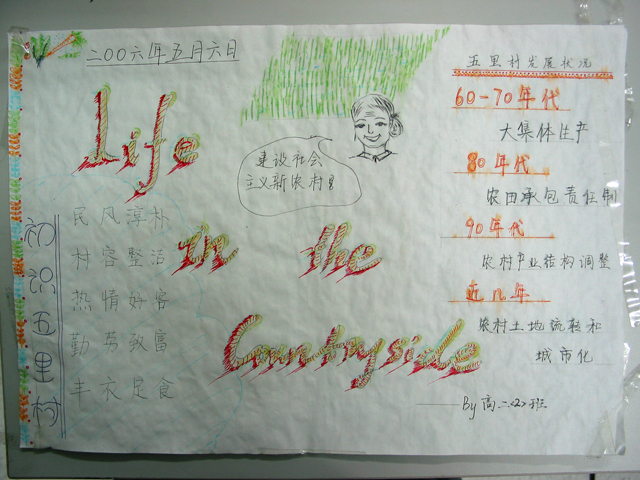 二〇〇六年五月六日
Life
in the
Countryside
建设社会
主义新农村!
初识五里村
民风淳朴
村容整洁
热情好客
勤劳致富
丰衣足食
五里村发展状况
60-70年代
大集体生产
80年代
农田承包责任制
90年代
农村产业结构调整
近几年
农村土地流转和
城市化
——By高二〈2〉班